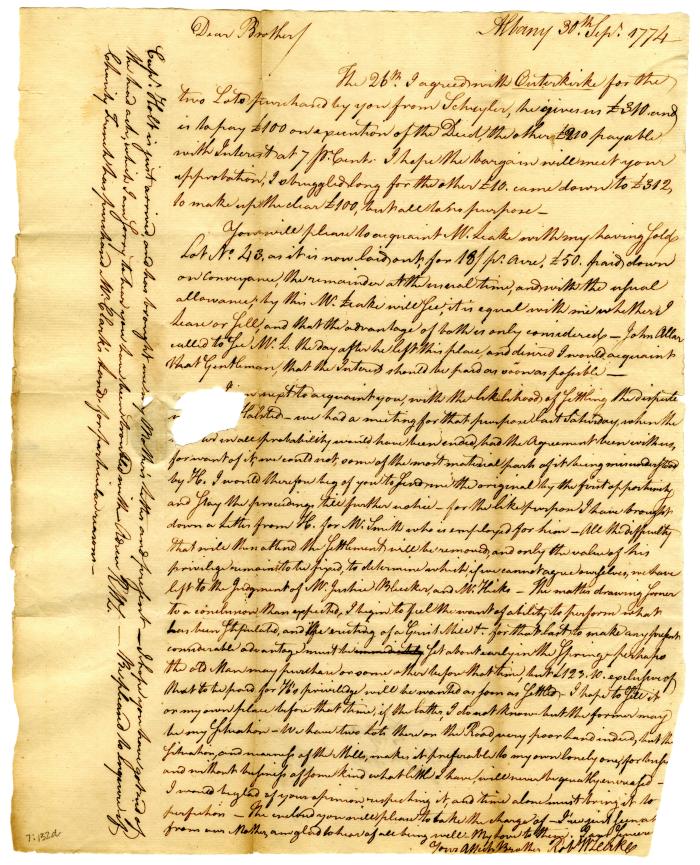 Dear Brother
Albany 30th Sepr. 1774
The 26th I agreed with Outerkirke for the
two Lots purchased by you from Schuyler, he gives us £310. and
is to pay £100 on execution of the Deed the other £210 payable
with Interest at 7 pr. Cent. I hope the bargain will meet your
approbation, I struggled long for the other £10. came down to £312,
to make up the clear £100, but all to no purpose—
You will please to acquaint Mr. Leake with my having sold
Lot No. 43. as it is now laid out, for 18/ pr. Acre, £50. paid down
on conveyance, the remainder at the usual time, and with the usual
allowance; by this Mr. Leake will see, it is equal with me whether I
lease or sell, and that the advantage of both is only considered — John Allan
called to see Mr. L. the day after he left this place, and desired I would acquaint
that Gentleman, that the Interest should be paid as soon as possible —
I am next to acquaint you, with the likelihood of settling the dispute
Halsted — we had a meeting for that purpose last Saturday, when the
in all probability would have been ended, had the Agreement been with us,
for want of it, we could not, some of the most material parts of it being misunderstood
by H. I would therefore beg of you to send me the original by the first opportunity
and stay the proceedings till further notice — for the like purpose I have brought
down a Letter from H. for Mr. Smith who is employed for him — All the difficulty
that will then attend the Settlement will be removed, and only the value of his
privilege remains to be fixed, to determine which if we cannot agree ourselves, we have
left to the Judgment of Mr. Justice Bleeker, and Mr. Hicks — The matter drawing sooner
to a conclusion than expected, I begin to feel the want of ability to perform what
has been stipulated, and the erecting of a Grist Mill &. for that last to make any present
considerable advantage must be set about early in the Spring — perhaps
the old Man may purchase or some other before that time, but £123.10. exclusive of
that to be paid for H's privilidge will be wanted as soon as settled; I hope to sell it
or my own place before that time, if the latter, I do not know but the former may
be my situation — We have two Lots there on the Road, very poor hand indeed, but the
situation, and nearness of the Mills, makes it preferable to my own lonely one, for business
and without business of some kind what little I have will never be greatly encreased —
I would be glad of your opinion respecting it, and time alone must bring it to
perfection — The enclosed you will please to take the charge of — I've just seen a
from our Mother, am glad to hear of all being well. My love to them. I am sincerely
Your Affect. Brother Robt. W. Leake
Capt. Holt is just arrived, and has brought me my Mother's Letter and present — I hope you have got rid of
the head ach, which I am sorry to hear you have been troubled with
Be pleased to enquire of
7:132d